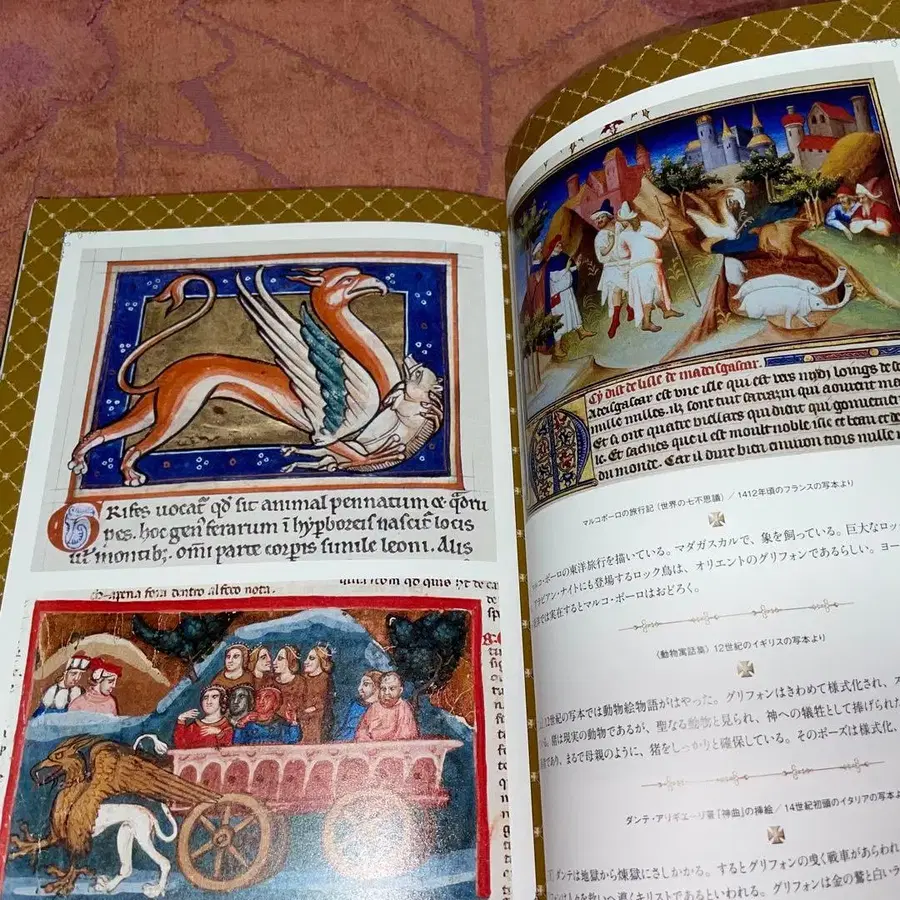 GRifes uocat̄ qđ sit animal pennatum & q̄dru
pes. hoc gen' ferarum ī hyperboreis nascit̄ locis
montibꝫ. om̄i parte corpis simile leoni. Alis
arena fora dentro al feco nota.
Cy dist de lisle de madisgascar.
Madeisgascar est une isle qui est vers mydy loings de
mille milles. ilz sont tuit sarazin qui aourent
Et si ont quatre viellars qui dient qui gouuernent
le. Et sachies que il est moult noble isle et beau et
du monde. Car il dure bien enuiron trois mille
マルコポーロの旅行記（世界の七不思議）／1412年頃のフランスの写本より
マルコ・ポーロの東洋旅行を描いている。マダガスカルで、象を飼っている。巨大なロッ
アラビアン・ナイトにも登場するロック鳥は、オリエントのグリフォンであるらしい。ヨー
では実在するとマルコ・ポーロはおどろく。
《動物寓話集》12世紀のイギリスの写本より
12世紀の写本では動物絵物語がはやった。グリフォンはきわめて様式化され、
猪は現実の動物であるが、聖なる動物と見られ、神への犠牲として捧げられた
であり、まるで母親のように、猪をしっかりと確保している。そのポーズは様式化、
ダンテ・アリギエーリ著『神曲』の挿絵／14世紀初頭のイタリアの写本よ
ダンテは地獄から煉獄にさしかかる。するとグリフォンの曳く戦車があらわれ
を救いへ導くキリストであるといわれる。グリフォンは金の鷲と白いラ